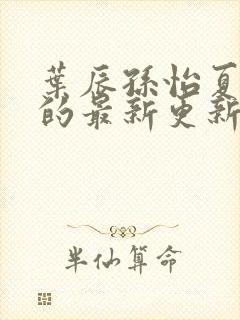 葉辰孫怡夏
的最新更新
半仙算命